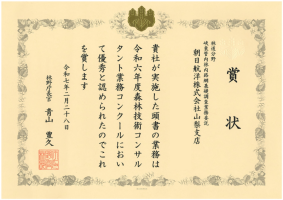 賞状
林道分野
朝日航洋株式会社山梨支店
貴社が実施した頭書の業務は
令和六年度森林技術コンサル
タント業務コンクールにおい
て優秀と認められたのでこれ
を賞します
令和七年二月二十八日
林野庁長官 青山豊久